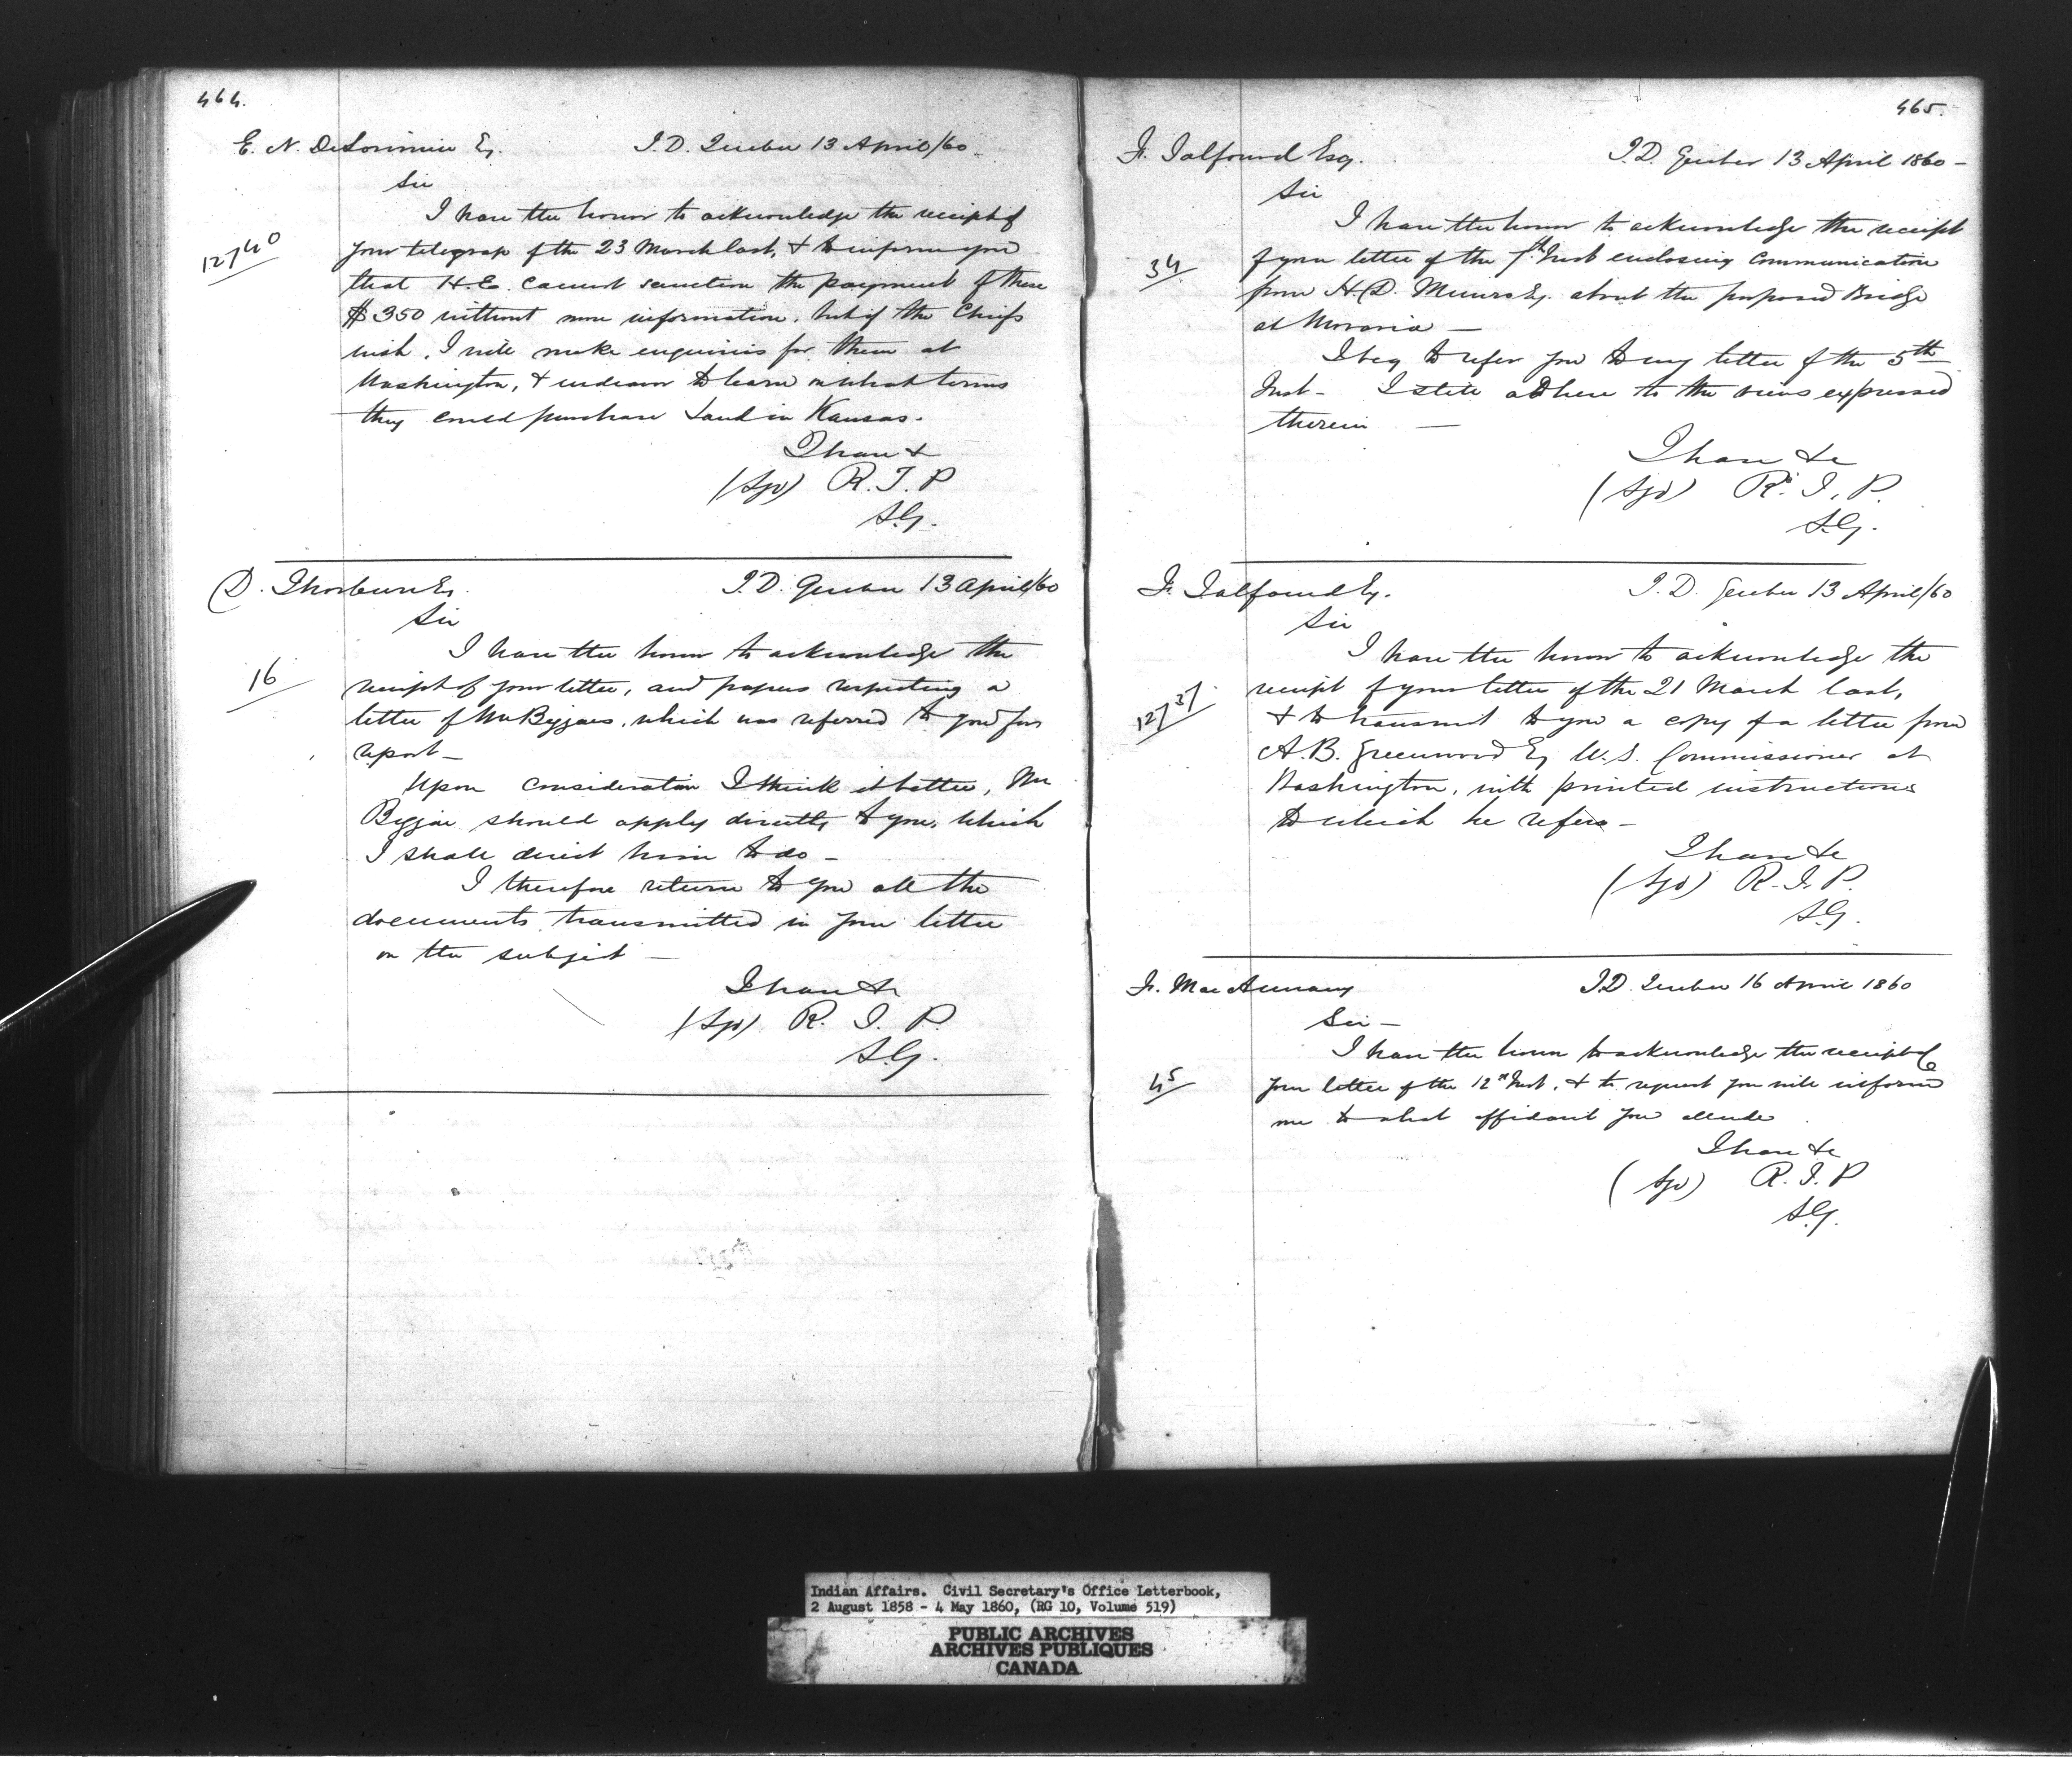 464.
E. N. DeLorimier Esq. I.D. Quebec 13 April/60
Sir
I have the honor to acknowledge the receipt of
12740
your telegrap of the 23 March last, & to inform you
that H.E. cannot sanction the payment of these
$350 without more information. but if the Chiefs
wish, I will make enquiries for them at
Washington, & endeavor to learn on what terms
they could purchase Land in Kansas.
I have &
(Sgd) R. T. P
S.G.
D. Thorburn Esq. I.D. Quebec 13 April/60
Sir
I have the honor to acknowledge the
16
receipt of your letter, and papers respecting a
letter of Mr Biggar, which was referred to you for
report -
Upon consideration I think it better, Mr
Biggar should apply directly to you, which
I shall direct him to do -
I therefore return to you all the
documents transmitted in your letter
on the subject -
I have &c
(Sgd) R. T. P.
S.G.
465.
F. Talfourd Esq. I.D. Quebec 13 April 1860 -
Sir
I have the honor to acknowledge the receipt
34
of your letter of the 7th Inst enclosing Communication
from H. D. Munro Esq. about the proposed Bridge
at Moravia -
I beg to refer you to my letter of the 5th
Inst - I still adhere to the views expressed
therein -
I have &c
(Sgd) R. T. P.
S.G.
F. Talfourd Esq. I.D. Quebec 13 April/60
Sir
I have the honor to acknowledge the
12737
receipt of your letter of the 21 March last,
& to transmit to you a copy of a letter from
A. B. Greenwood Esq U.S. Commissioner at
Washington, with printed instructions
to which he refers -
I have &c
(Sgd) R. T. P.
S.G.
Mac I.D. Quebec 16 April 1860
Sir -
I have the honor to acknowledge the receipt of
45
your letter of the 12th Inst. & to request you will inform
me to what affidavit you allude
I have &c
(Sgd) R. T. P
S.G.
Indian Affairs. Civil Secretary's Office Letterbook,
2 August 1858 - 4 May 1860, (RG 10, Volume 519)
PUBLIC ARCHIVES
ARCHIVES PUBLIQUES
CANADA